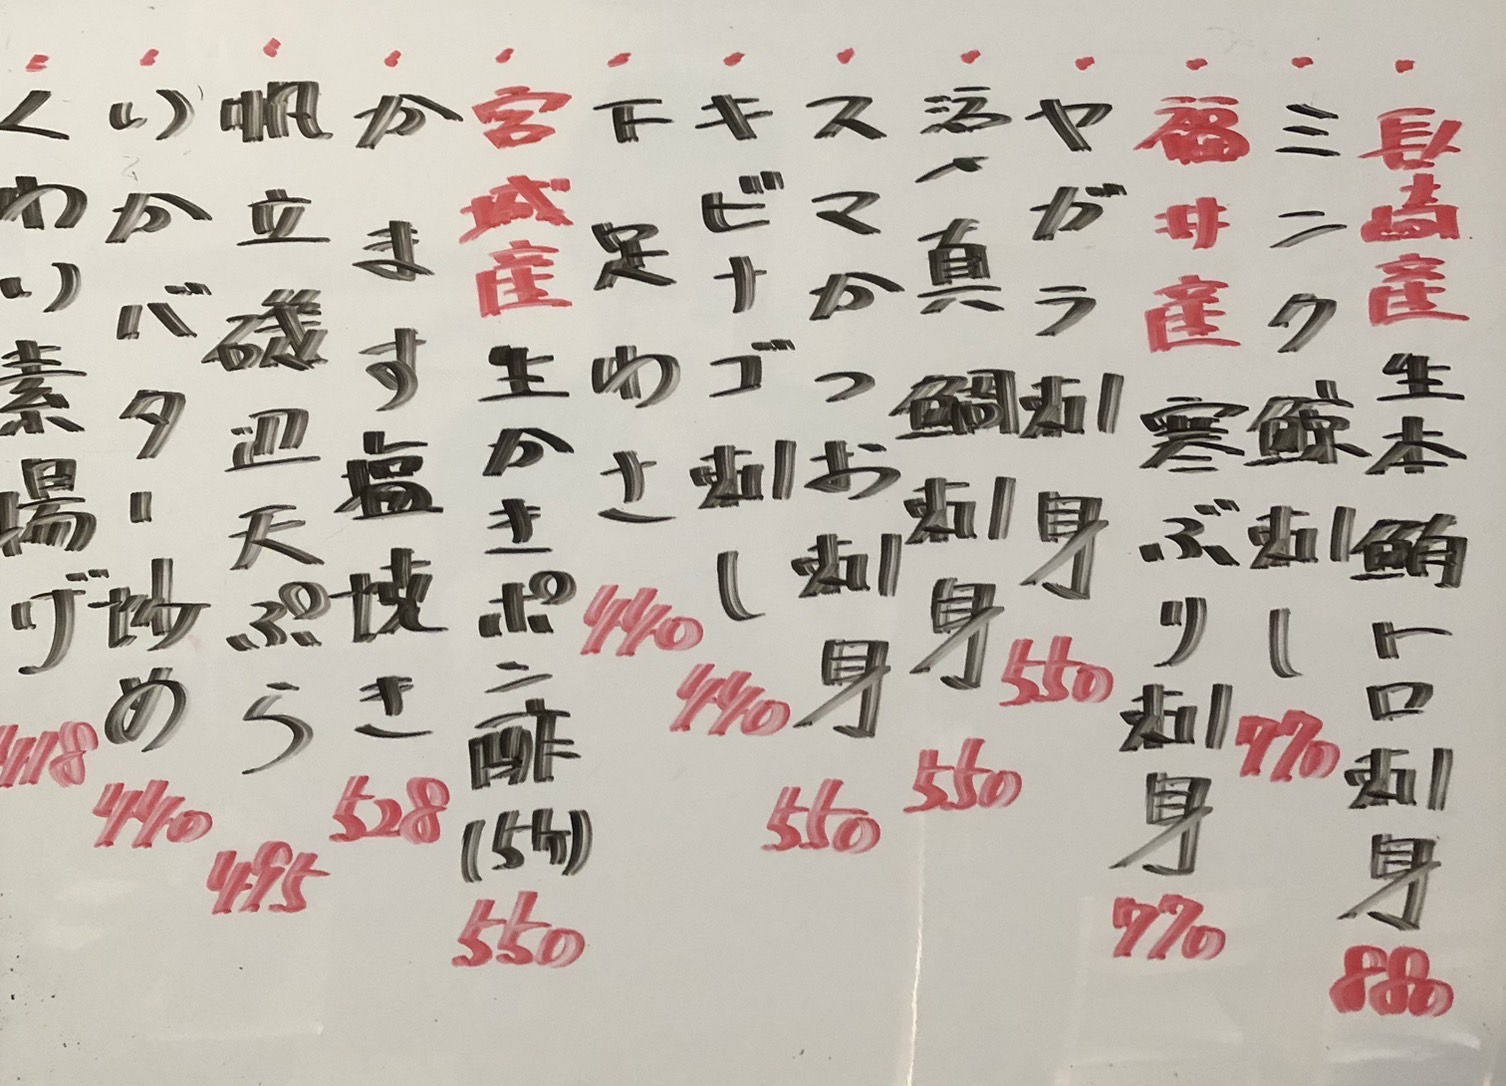 ・長崎産生本鮪トロ刺身 880
・ミンク鯨刺し 770
・福井産寒ぶり刺身 770
・ヤガラ刺身 550
・活〆真鯛刺身 550
・スマかつお刺身 550
・キビナゴ刺し 440
・下足わさ 440
・宮城産生かきポン酢 550
・かます塩焼き 528
・帆立磯辺天ぷら 495
・いかバター炒め 440
・くわい素揚げ 418